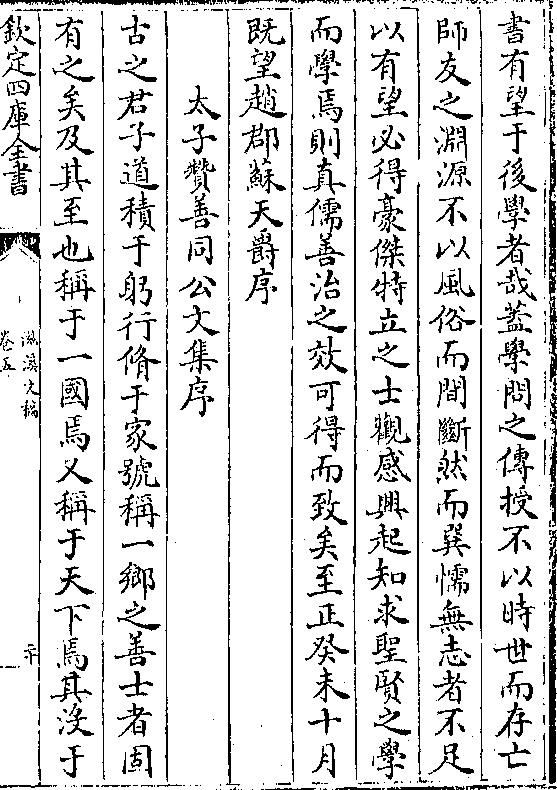 書有望于後學者哉蓋學問之傳授不以時世而存亡
師友之淵源不以風俗而間斷然而巽懦無志者不足
以有望必得豪傑特立之士觀感興起知求聖賢之學
而學焉則真儒善治之效可得而致矣至正癸未十月
既望趙郡蘇天爵序
太子贊善同公文集序
古之君子道積于躬行脩于家號稱一鄉之善士者固
有之矣及其至也稱于一國焉又稱于天下焉其沒于
欽定四庫全書
滋溪文稿
卷五
二十